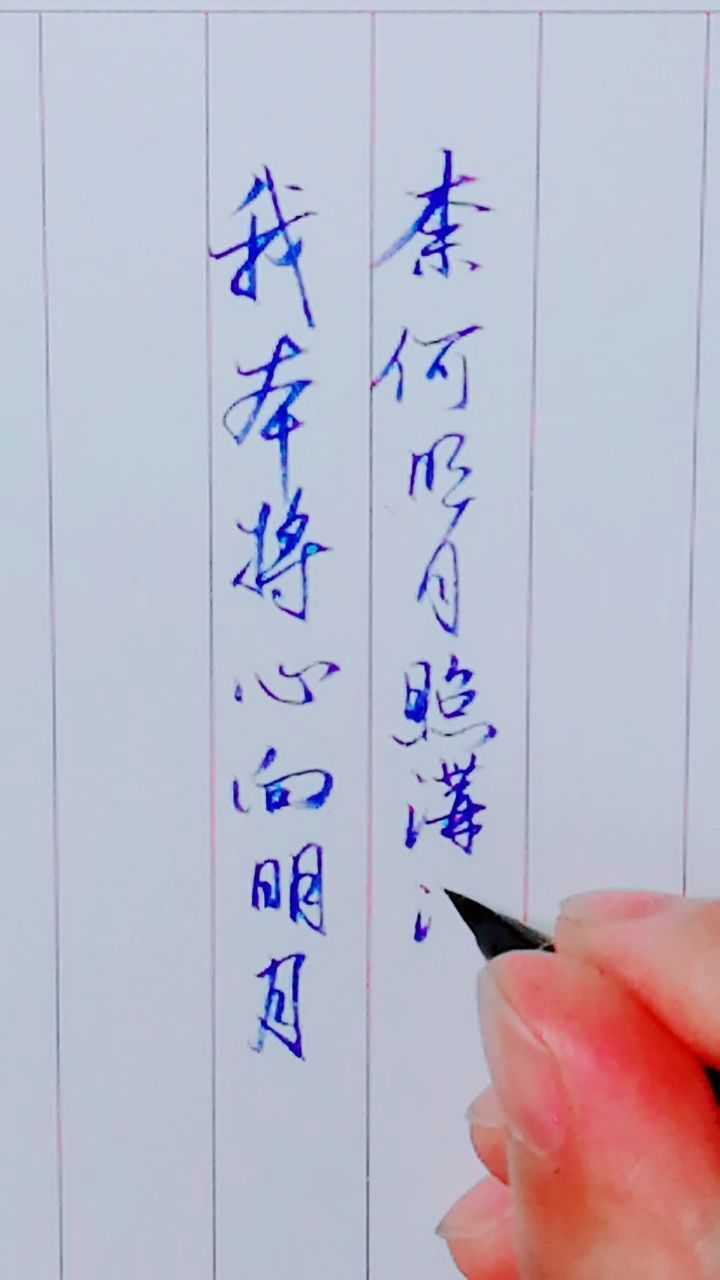 我本将心向明月
奈何明月照溝